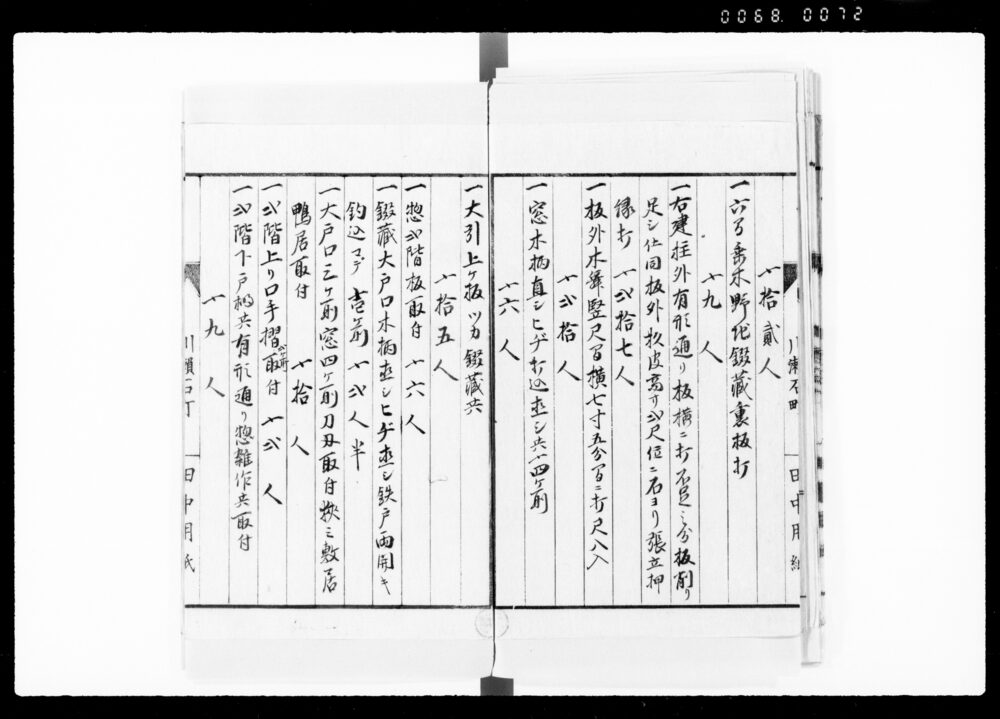 0068.0072
川瀬石町
田中用紙
〃拾貳人
一六ツ垂木野地錣蔵裏板打
〃九人
一右建柱外有形通り板横ニ打不足ミ分板削り
足シ仕同板外杉皮高サ弐尺位ニ石ヨリ張立押
縁打 〃弐拾七人
一板外木舞竪尺間横七寸五分間ニ打尺八入
〃弐拾人
一窓木柄直シヒゲ打込直シ共〃四ケ所
〃六人
一大引上ケ板ツカ錣蔵共
〃拾五人
一惣弐階板取付 〃六人
一錣蔵大戸口木柄直シヒゲ直シ鉄戸両開キ
釣込マデ壱ケ所 〃弐人半
一大戸口三ケ所窓四ケ所刀刃取付挾ミ敷居
鴨居取付 〃拾人
一弐階上リ口手摺取付 〃弐人
一弐階下戸棚共有形通り惣雑作共取付
〃九人
川瀬石町
田中用紙